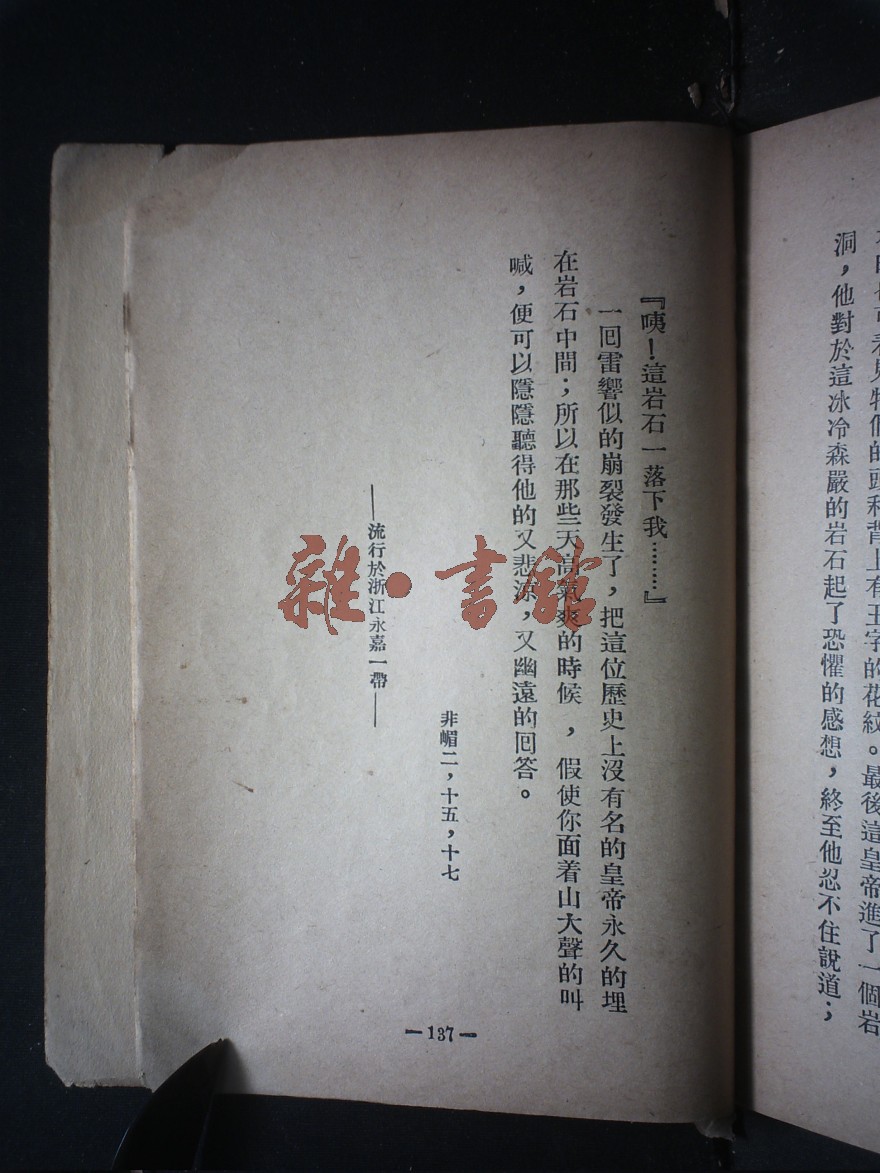 見牠們的頭和背上有王字的花紋。最後這皇帝進了一個岩
洞，他對於這冰冷森嚴的岩石起了恐懼的感想，終至他忍不住說道；
『咦！這岩石一落下我………』
一囘雷響似的崩裂發生了，把這位歷史上沒有名的皇帝永久的埋
在岩石中間；所以在那些天高氣爽的時候，假使你面着山大聲的叫
喊，便可以隱隱聽得他的又悲涼，又幽遠的囘答。
非嵋二，十五，十七
—流行於浙江永嘉一帶—
—137—
雜·書館